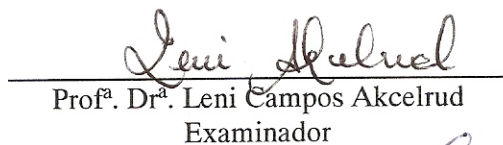 Leni Akcelrud
Profª. Drª. Leni Campos Akcelrud
Examinador